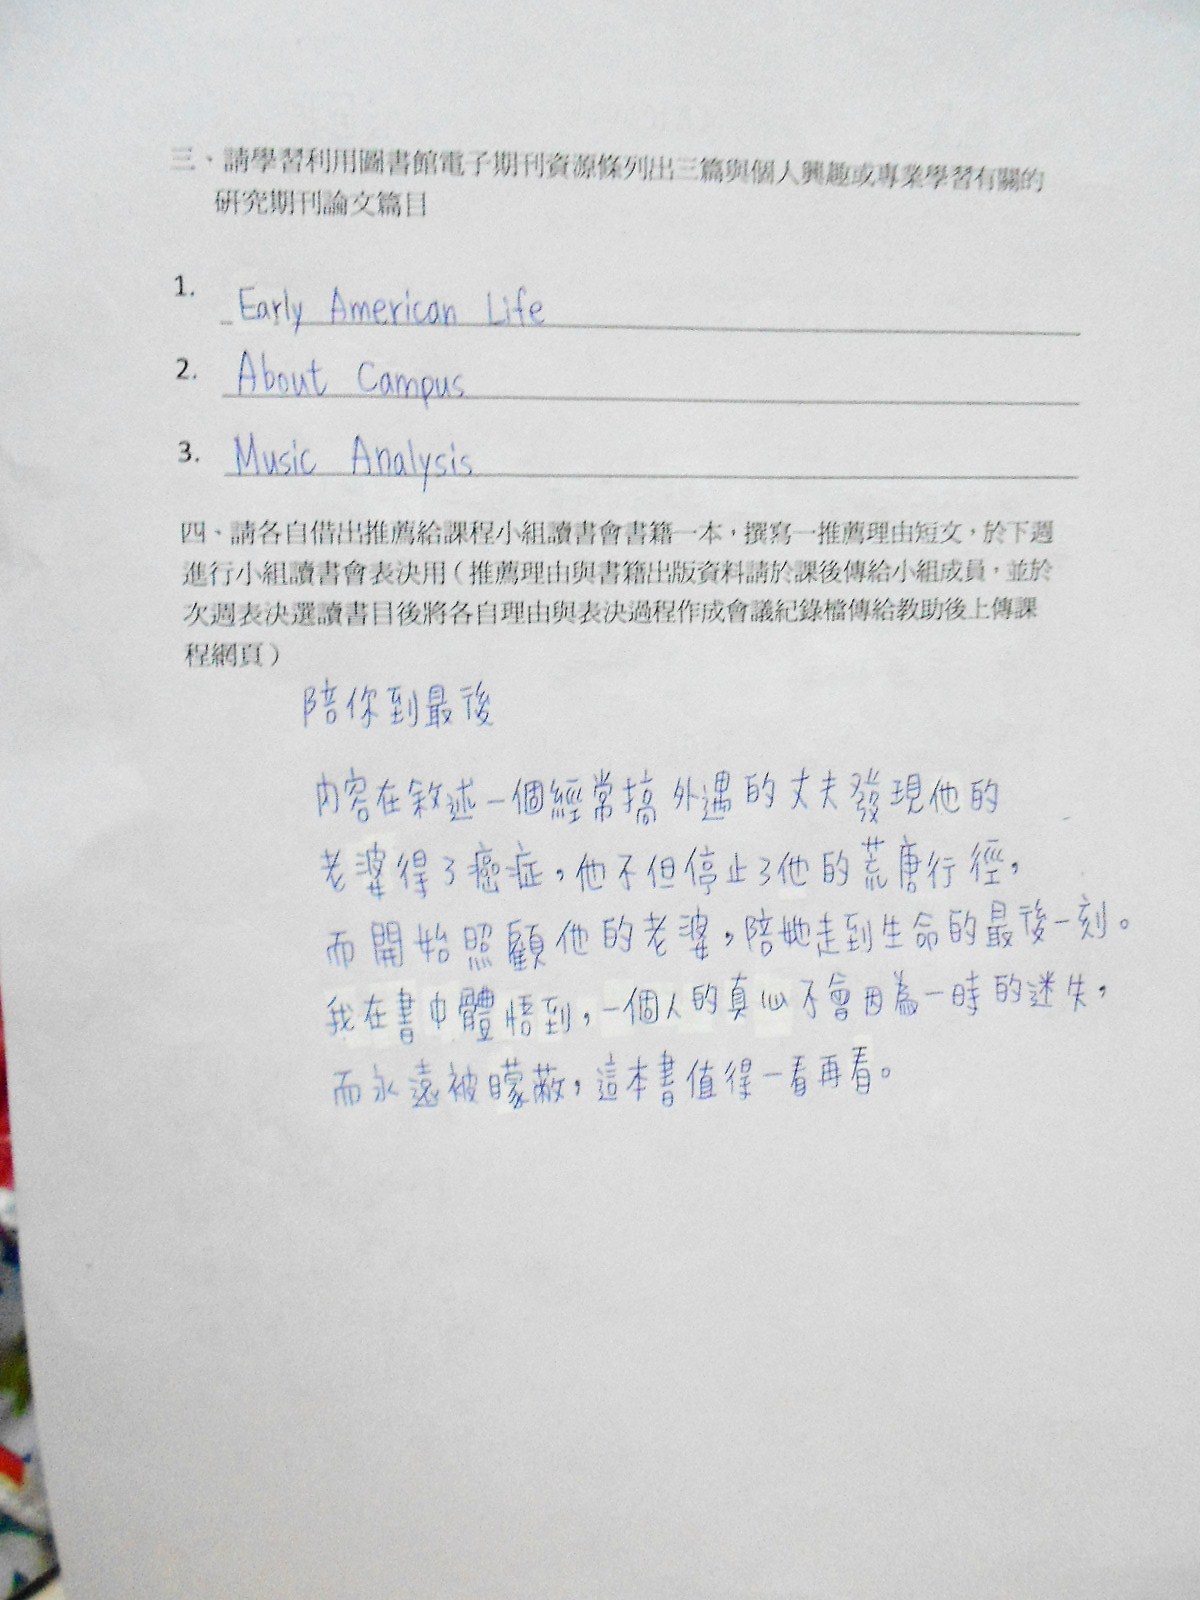 三、請學習利用圖書館電子期刊資源條列出三篇與個人興趣或專業學習有關的
研究期刊論文篇目
1. Early American Life
2. About Campus
3. Music Analysis
四、請各自借出推薦給課程小組讀書會書籍一本，撰寫一推薦理由短文，於下週
進行小組讀書會表決用（推薦理由與書籍出版資料請於課後傳給小組成員，並於
次週表決選讀書目後將各自理由與表決過程作成會議紀錄檔傳給教助後上傳課
程網頁）
陪你到最後
內容在敘述一個經常搞外遇的丈夫發現他的
老婆得了癌症，他不但停止了他的荒唐行徑，
而開始照顧他的老婆，陪她走到生命的最後一刻。
我在書中體悟到，一個人的真心不會因為一時的迷失，
而永遠被矇蔽，這本書值得一看再看。